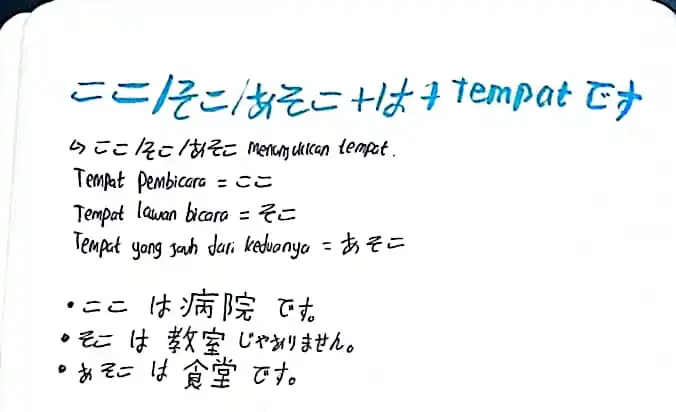 ここ/そこ/あそこ+は+Tempatです
↳ ここ/そこ/あそこ menunjukkan tempat.
Tempat Pembicara = ここ
Tempat lawan bicara = そこ
Tempat yang jauh dari keduanya = あそこ
• ここ は 病院 です。
• そこ は 教室 じゃありません。
• あそこ は 食堂 です。